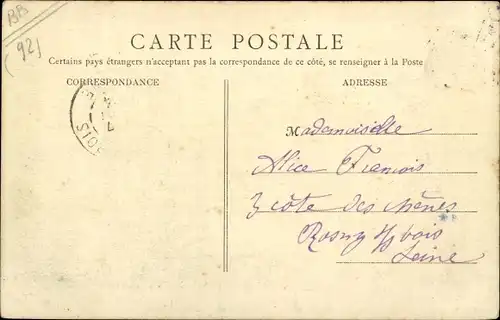 BB
(92)
CARTE POSTALE
Certains pays étrangers n'acceptant pas la correspondance de ce côté, se renseigner à la Poste
CORRESPONDANCE
ADRESSE
Mademoiselle
Alice François
3 côte des chênes
Rosny s/s bois
Seine